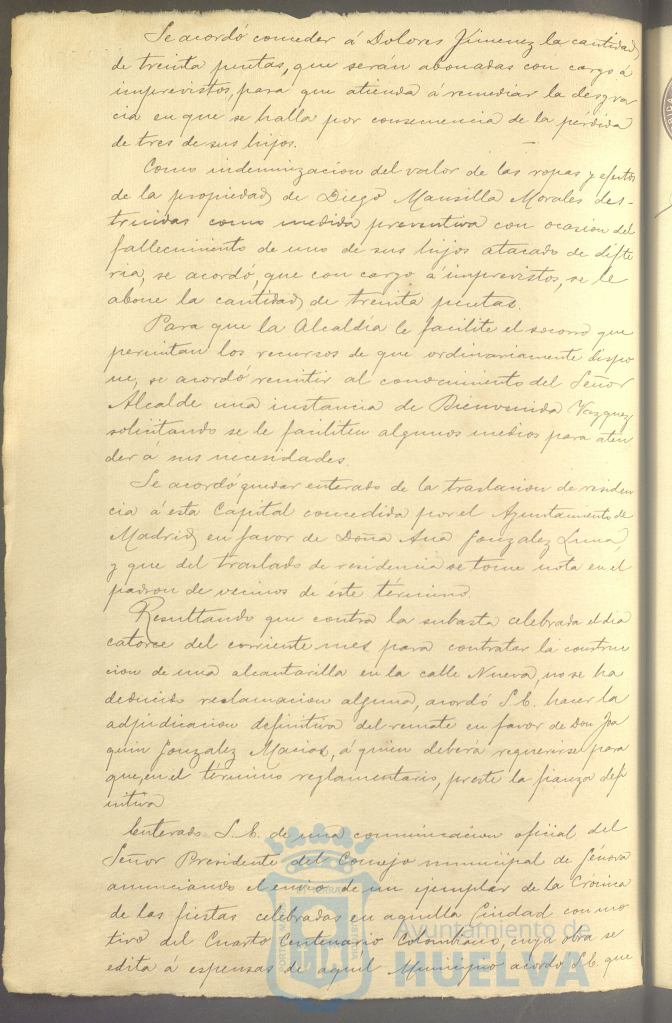 Se acordó conceder á Dolores Jimenez la cantidad
de treinta pesetas, que serán abonadas con cargo á
imprevistos, para que atienda á remediar la desgra
cia en que se halla por consecuencia de la pérdida
de tres de sus hijos.
Como indemnizacion del valor de las ropas y efectos
de la propiedad de Diego Mansilla Morales des-
truidas como medida preventiva con ocasion del
fallecimiento de uno de sus hijos atacado de difte
ria, se acordó, que con cargo á imprevistos, se le
abone la cantidad de treinta pesetas.
Para que la Alcaldía le facilite el socorro que
permitan los recursos de que ordinariamente dispo
ne, se acordó remitir al conocimiento del Señor
Alcalde una instancia de Bienvenida Vazquez
solicitando se le faciliten algunos medios para aten
der á sus necesidades.
Se acordó quedar enterado de la traslacion de residen
cia á esta Capital concedida por el Ayuntamiento de
Madrid en favor de Doña Ana Gonzalez Luna,
y que del traslado de residencia se tome nota en el
padron de vecinos de éste término.
Resultando que contra la subasta celebrada el dia
catorce del corriente mes para contratar la construc
cion de una alcantarilla en la calle Nueva, no se ha
deducido reclamacion alguna, acordó S.E. hacer la
adjudicacion definitiva del remate en favor de Don Joa
quin Gonzalez Macias, á quien deberá requerirse para
que, en el término reglamentario, preste la fianza defi
nitiva
Enterado S.E. de una comunicacion oficial del
Señor Presidente del Consejo municipal de Génova
anunciando el envio de un ejemplar de la Crónica
de las fiestas celebradas en aquella Ciudad con mo
tivo del Cuarto Centenario Colombino, cuya obra se
edita á espensas de aquel Municipio acordó S.E. que
Ayuntamiento de
HUELVA